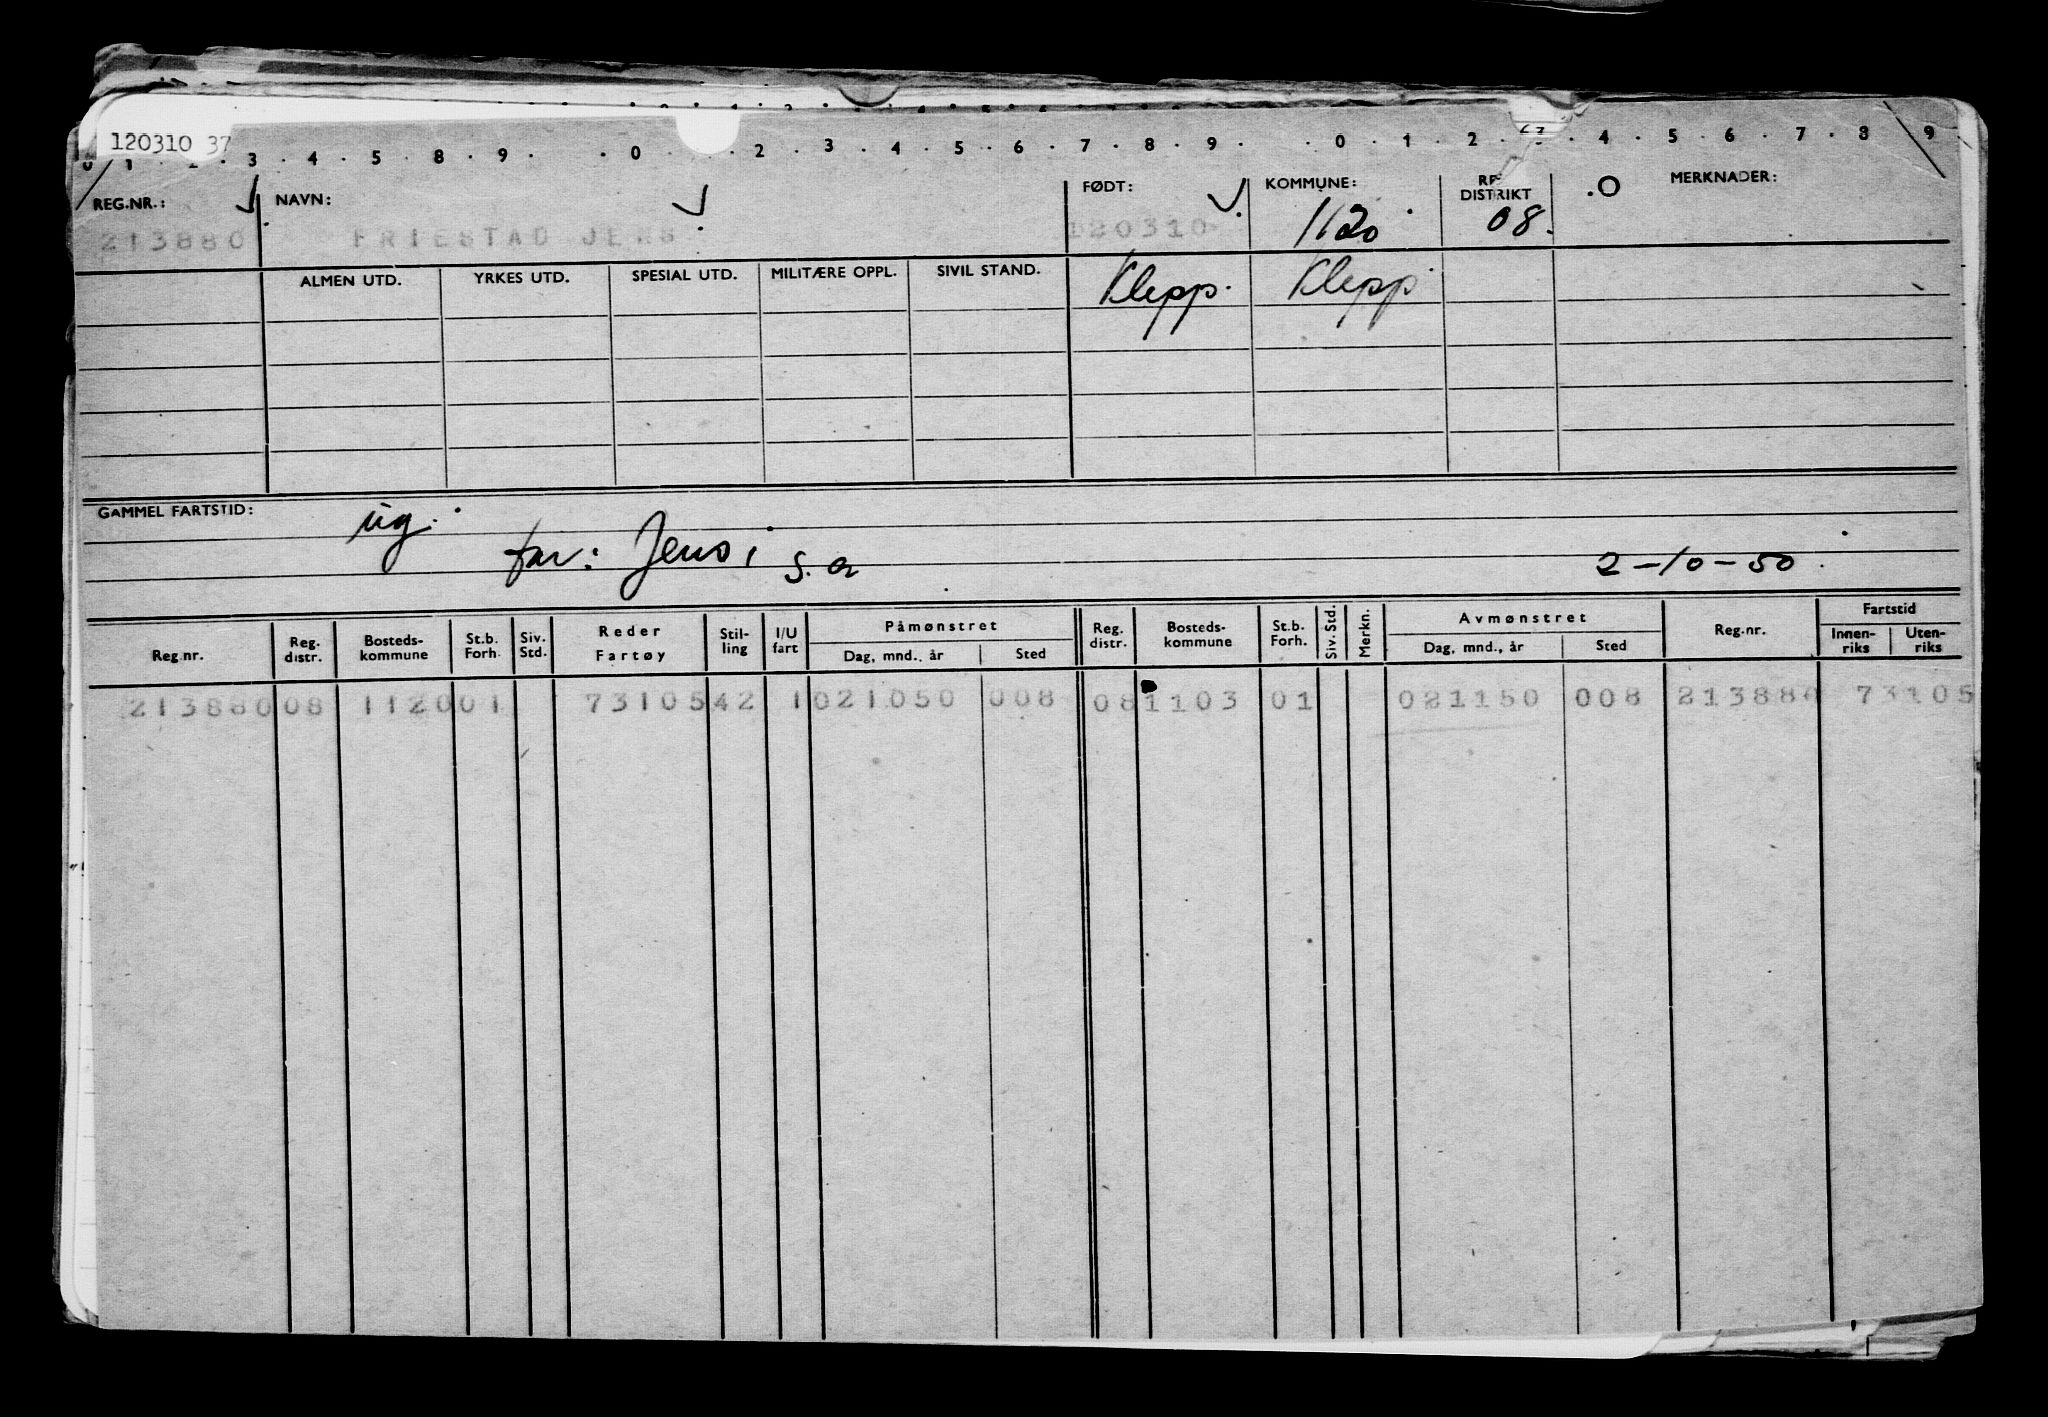 120310 37
0 1 2 3 4 5 8 9 0 2 3 4 5 6 7 8 9 0 1 2 63 4 5 6 7 8 9
REG.NR.: NAVN: FØDT: KOMMUNE: DISTRIKT MERKNADER:
213880 FRIESTAD JENS 120310 1120 08.
ALMEN UTD. YRKES UTD. SPESIAL UTD. MILITÆRE OPPL. SIVIL STAND. Klepp. Klepp
GAMMEL FARTSTID: ug.
far: Jens, s. a 2-10-50.
Reg.nr. Reg. distr. Bosteds- kommune St.b. Forh. Siv. Std. Reder Fartøy Stil- ling I/U fart Påmønstret Dag, mnd., år Sted Reg. distr. Bosteds- kommune St.b. Forh. Siv. Std. Merkn. Avmønstret Dag, mnd., år Sted Reg.nr. Fartstid Innen- riks Uten- riks
213880 08 1120 01 73105 42 1 021050 008 08 1103 01 021150 008 213880 73105